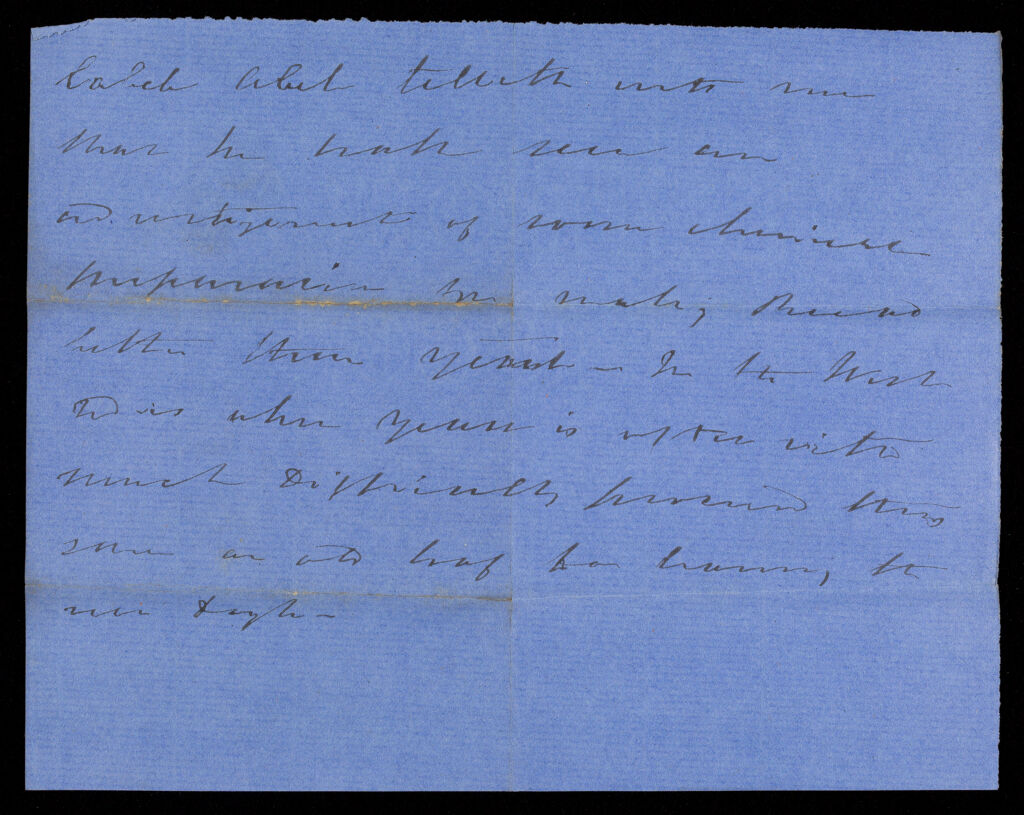 Caleb Abel telleth unto me
that he hath seen an
advertizement of some chemical
preparation for making Bread
better than yeast – In the West
Indies when yeast is often with
much difficulty procured they
save an old loaf for leavening the
new dough –